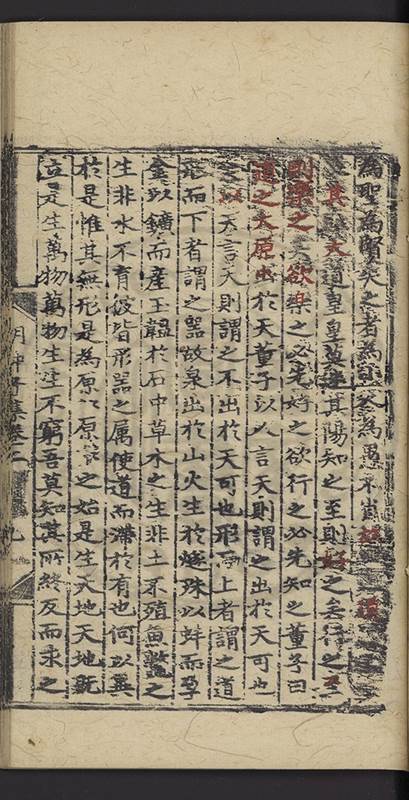 為聖為賢失之者為為愚不
其大道皇皇莫其陽知之至則好之矣行之至
則樂之矣欲樂之必先好之欲行之必先知之董子曰
道之大原出於天董子以人言天則謂之出於天可也
以天言天則謂之不出於天可也形而上者謂之道
形而下者謂之噐故泉出於山火生於燧珠以蚌而孕
金以鑛而産玉韞於石中草木之生非土不殖魚鼈之
生非水不育彼皆形噐之属使道而滯於有也何以異
於是惟其無形是為原以原之始是生天地天地既
立是生萬物萬物生生不窮吾莫知其所終反而求之
集卷二 九